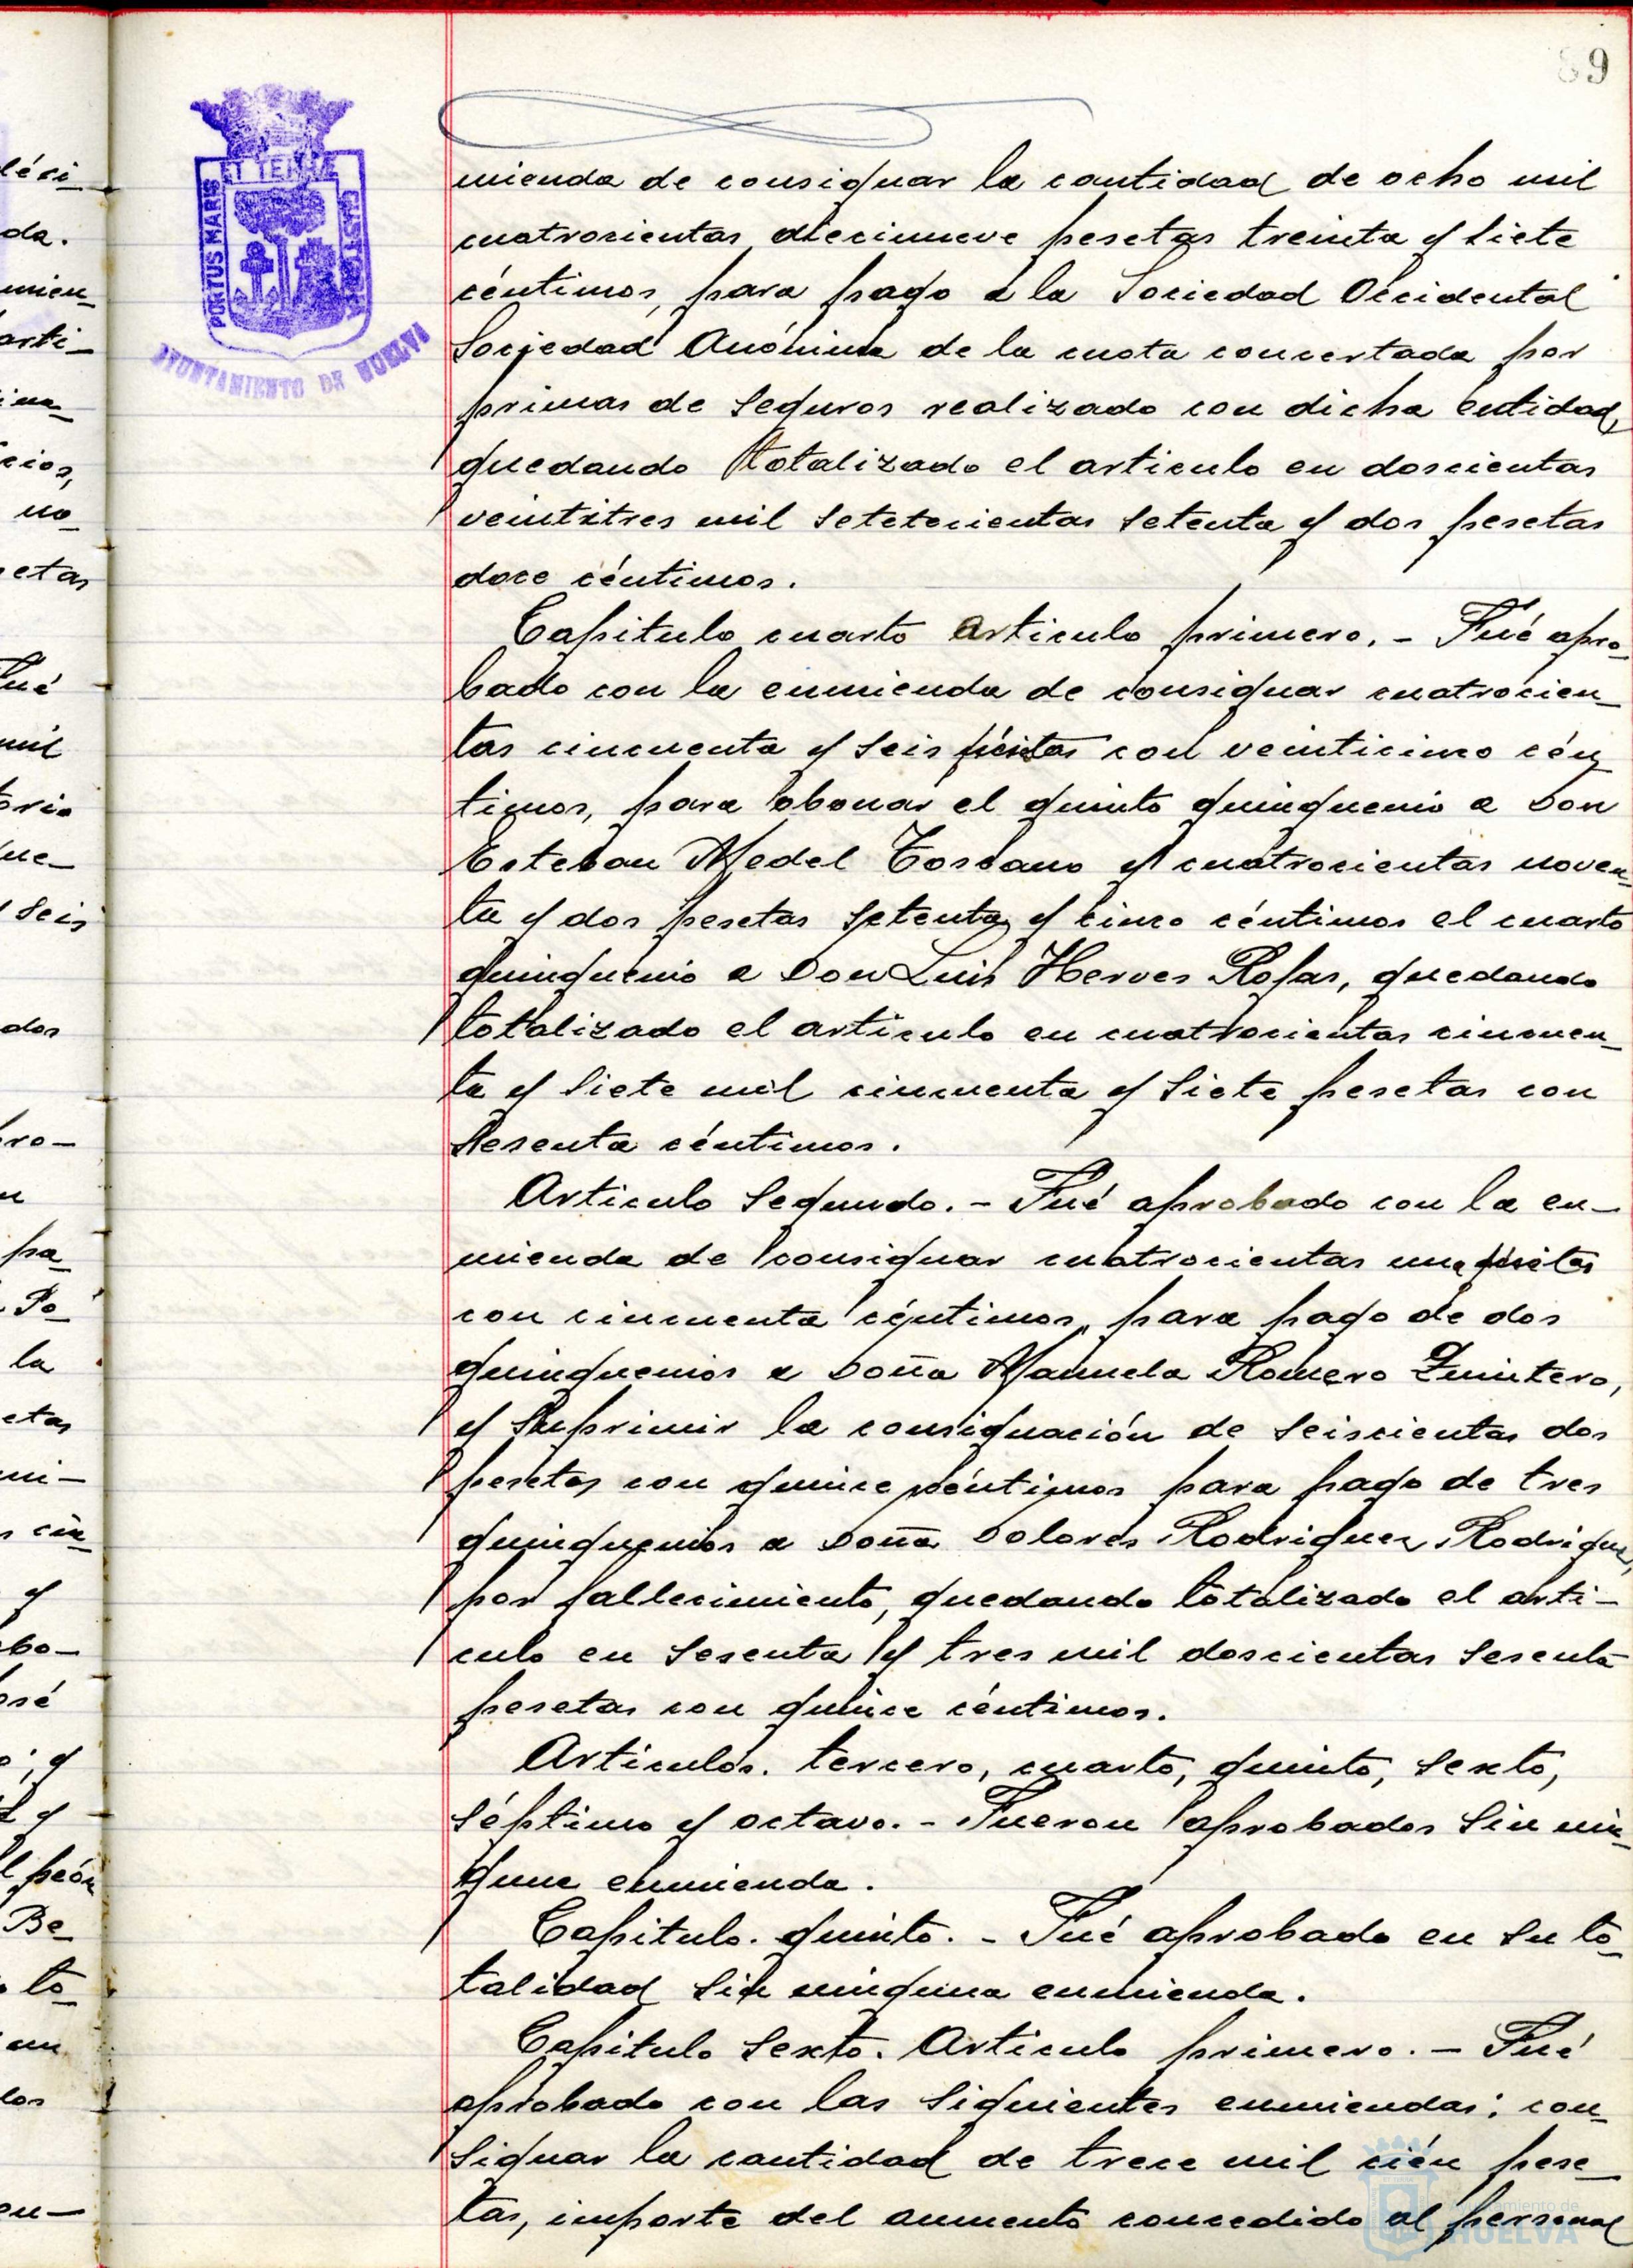 89
PORTUS MARIS ET TERRAE CUSTODIA
AYUNTAMIENTO DE HUELVA
mienda de consignar la cantidad de ocho mil
cuatrocientas diecinueve pesetas treinta y siete
céntimos, para pago a la Sociedad Occidental
Sociedad Anónima de la cuota concertada por
primas de seguros realizado con dicha entidad,
quedando totalizado el articulo en doscientas
veintitres mil setetecientas setenta y dos pesetas
doce céntimos.
Capitulo cuarto Articulo primero. - Fué apro-
bado con la enmienda de consignar cuatrocien-
tas cincuenta y seis pesetas con veinticinco cén-
timos, para abonar el quinto quinquenio a Don
Esteban Medel Toscano y cuatrocientas noven-
ta y dos pesetas setenta y cinco céntimos el cuarto
quinquenio a Don Luis Herves Rojas, quedando
totalizado el articulo en cuatrocientas cincuen-
ta y siete mil cincuenta y siete pesetas con
sesenta céntimos.
Articulo segundo. - Fué aprobado con la en-
mienda de consignar cuatrocientas una pesetas
con cincuenta céntimos, para pago de dos
quinquenios a Doña Manuela Romero Quintero,
y suprimir la consignación de seiscientas dos
pesetas con quince céntimos para pago de tres
quinquenios a Doña Dolores Rodriguez Rodriguez,
por fallecimiento, quedando totalizado el arti-
culo en sesenta y tres mil doscientas sesenta
pesetas con quince céntimos.
Articulos. tercero, cuarto, quinto, sexto,
séptimo y octavo. - Fueron aprobados sin nin-
guna enmienda.
Capitulo. quinto. - Fué aprobado en su to-
talidad sin ninguna enmienda.
Capitulo sexto. Articulo primero. - Fué
aprobado con las siguientes enmiendas: con-
signar la cantidad de trece mil cién pese-
tas, importe del aumento concedido al personal
Ayuntamiento de
HUELVA